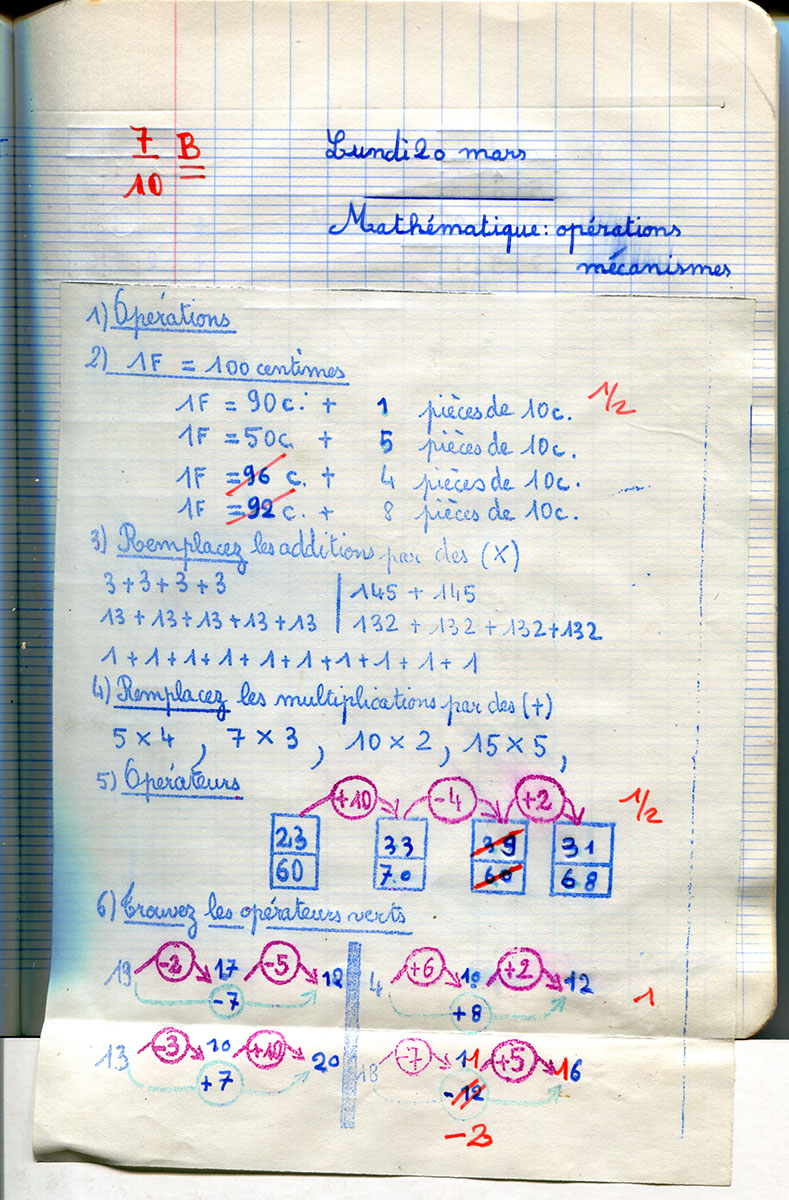 7
10 B
Lundi 20 mars
Mathématique: opérations
mécanismes
1) Opérations
2) 1F = 100 centimes
1F = 90c. + 1 pièces de 10c. 1/2
1F = 50c. + 5 pièces de 10c.
1F = 96 c. + 4 pièces de 10c.
1F = 92 c. + 8 pièces de 10c.
3) Remplacez les additions par des (X)
3+3+3+3 | 145 + 145
13+13+13+13+13 | 132 + 132 + 132+132
1+1+1+1+1+1+1+1+1+1
4) Remplacez les multiplications par des (+)
5 × 4 , 7 × 3 , 10 × 2 , 15 × 5 ,
5) Opérateurs
+10 -4 +2 1/2
23 33 39 31
60 70 60 68
6) Trouvez les opérateurs verts
19 -2 17 -5 12 4 +6 10 +2 12
-7 +8 1
13 -3 10 +10 20 18 -7 11 +5 16
+7 -12